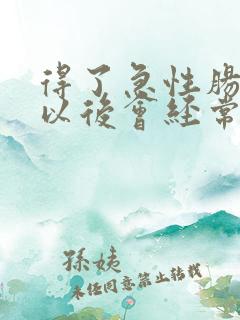 得了急性腸
以後會經常
孫姨
未經同意禁止轉載